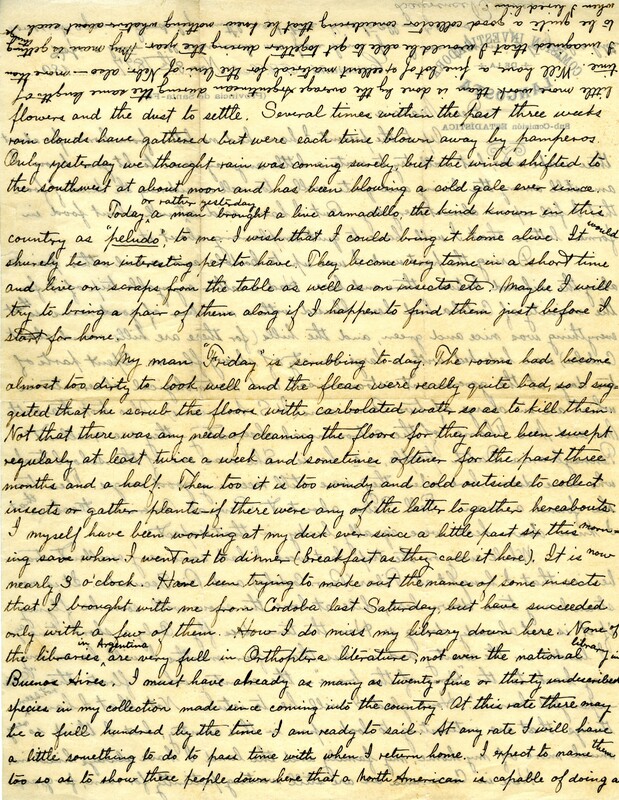 flowers and the dust to settle. Several times within the past three weeks
rain clouds have gathered but were each time blown away by pamperos.
Only yesterday we thought rain was coming surely, but the wind shifted to
the southwest at about noon and has been blowing a cold gale ever since.
Today, or rather yesterday a man brought a live armadillo, the kind known in this
country as "peludo", to me. I wish that I could bring it home alive. It would
shurely be an interesting pet to have. They become very tame in a short time
and live on scraps from the table as well as on insects etc. Maybe I will
try to bring a pair of them along if I happen to find them just before I
start for home.
My man "Friday" is scrubbing to-day. The rooms had become
almost too dirty to look well and the fleas were really quite bad, so I sug-
gested that he scrub the floors with carbolated water so as to kill them.
Not that there was any need of cleaning the floors for they have been swept
regularly at least twice a week and sometimes oftener for the past three
months and a half. Then too it is too windy and cold outside to collect
insects or gather plants—if there were any of the latter to gather hereabouts.
I myself have been working at my desk ever since a little past six this morn-
ing save when I went out to dinner (breakfast as they call it here). It is now
nearly 3 o'clock. Have been trying to make out the names of some insects
that I brought with me from Cordoba last Saturday, but have succeeded
only with a few of them. How I do miss my library down here. None of
the libraries in Argentina are very full in Orthoptera literature, not even the national library in
Buenos Aires. I must have already as many as twenty-five or thirty undescribed
species in my collection made since coming into the country. At this rate there may
be a full hundred by the time I am ready to sail. At any rate I will have
a little something to do to pass time with when I return home. I expect to name them
too so as to show these people down here that a North American is capable of doing a
little more work than is done by the average Argentinean during the same length of
time. Will have a fine lot of excellent material for the Uni. of Nebr. also—more than
I imagined that I would be able to get together during the year. My man is getting
to be quite a good collector considering that he knew nothing whatever about such
when I hired him.